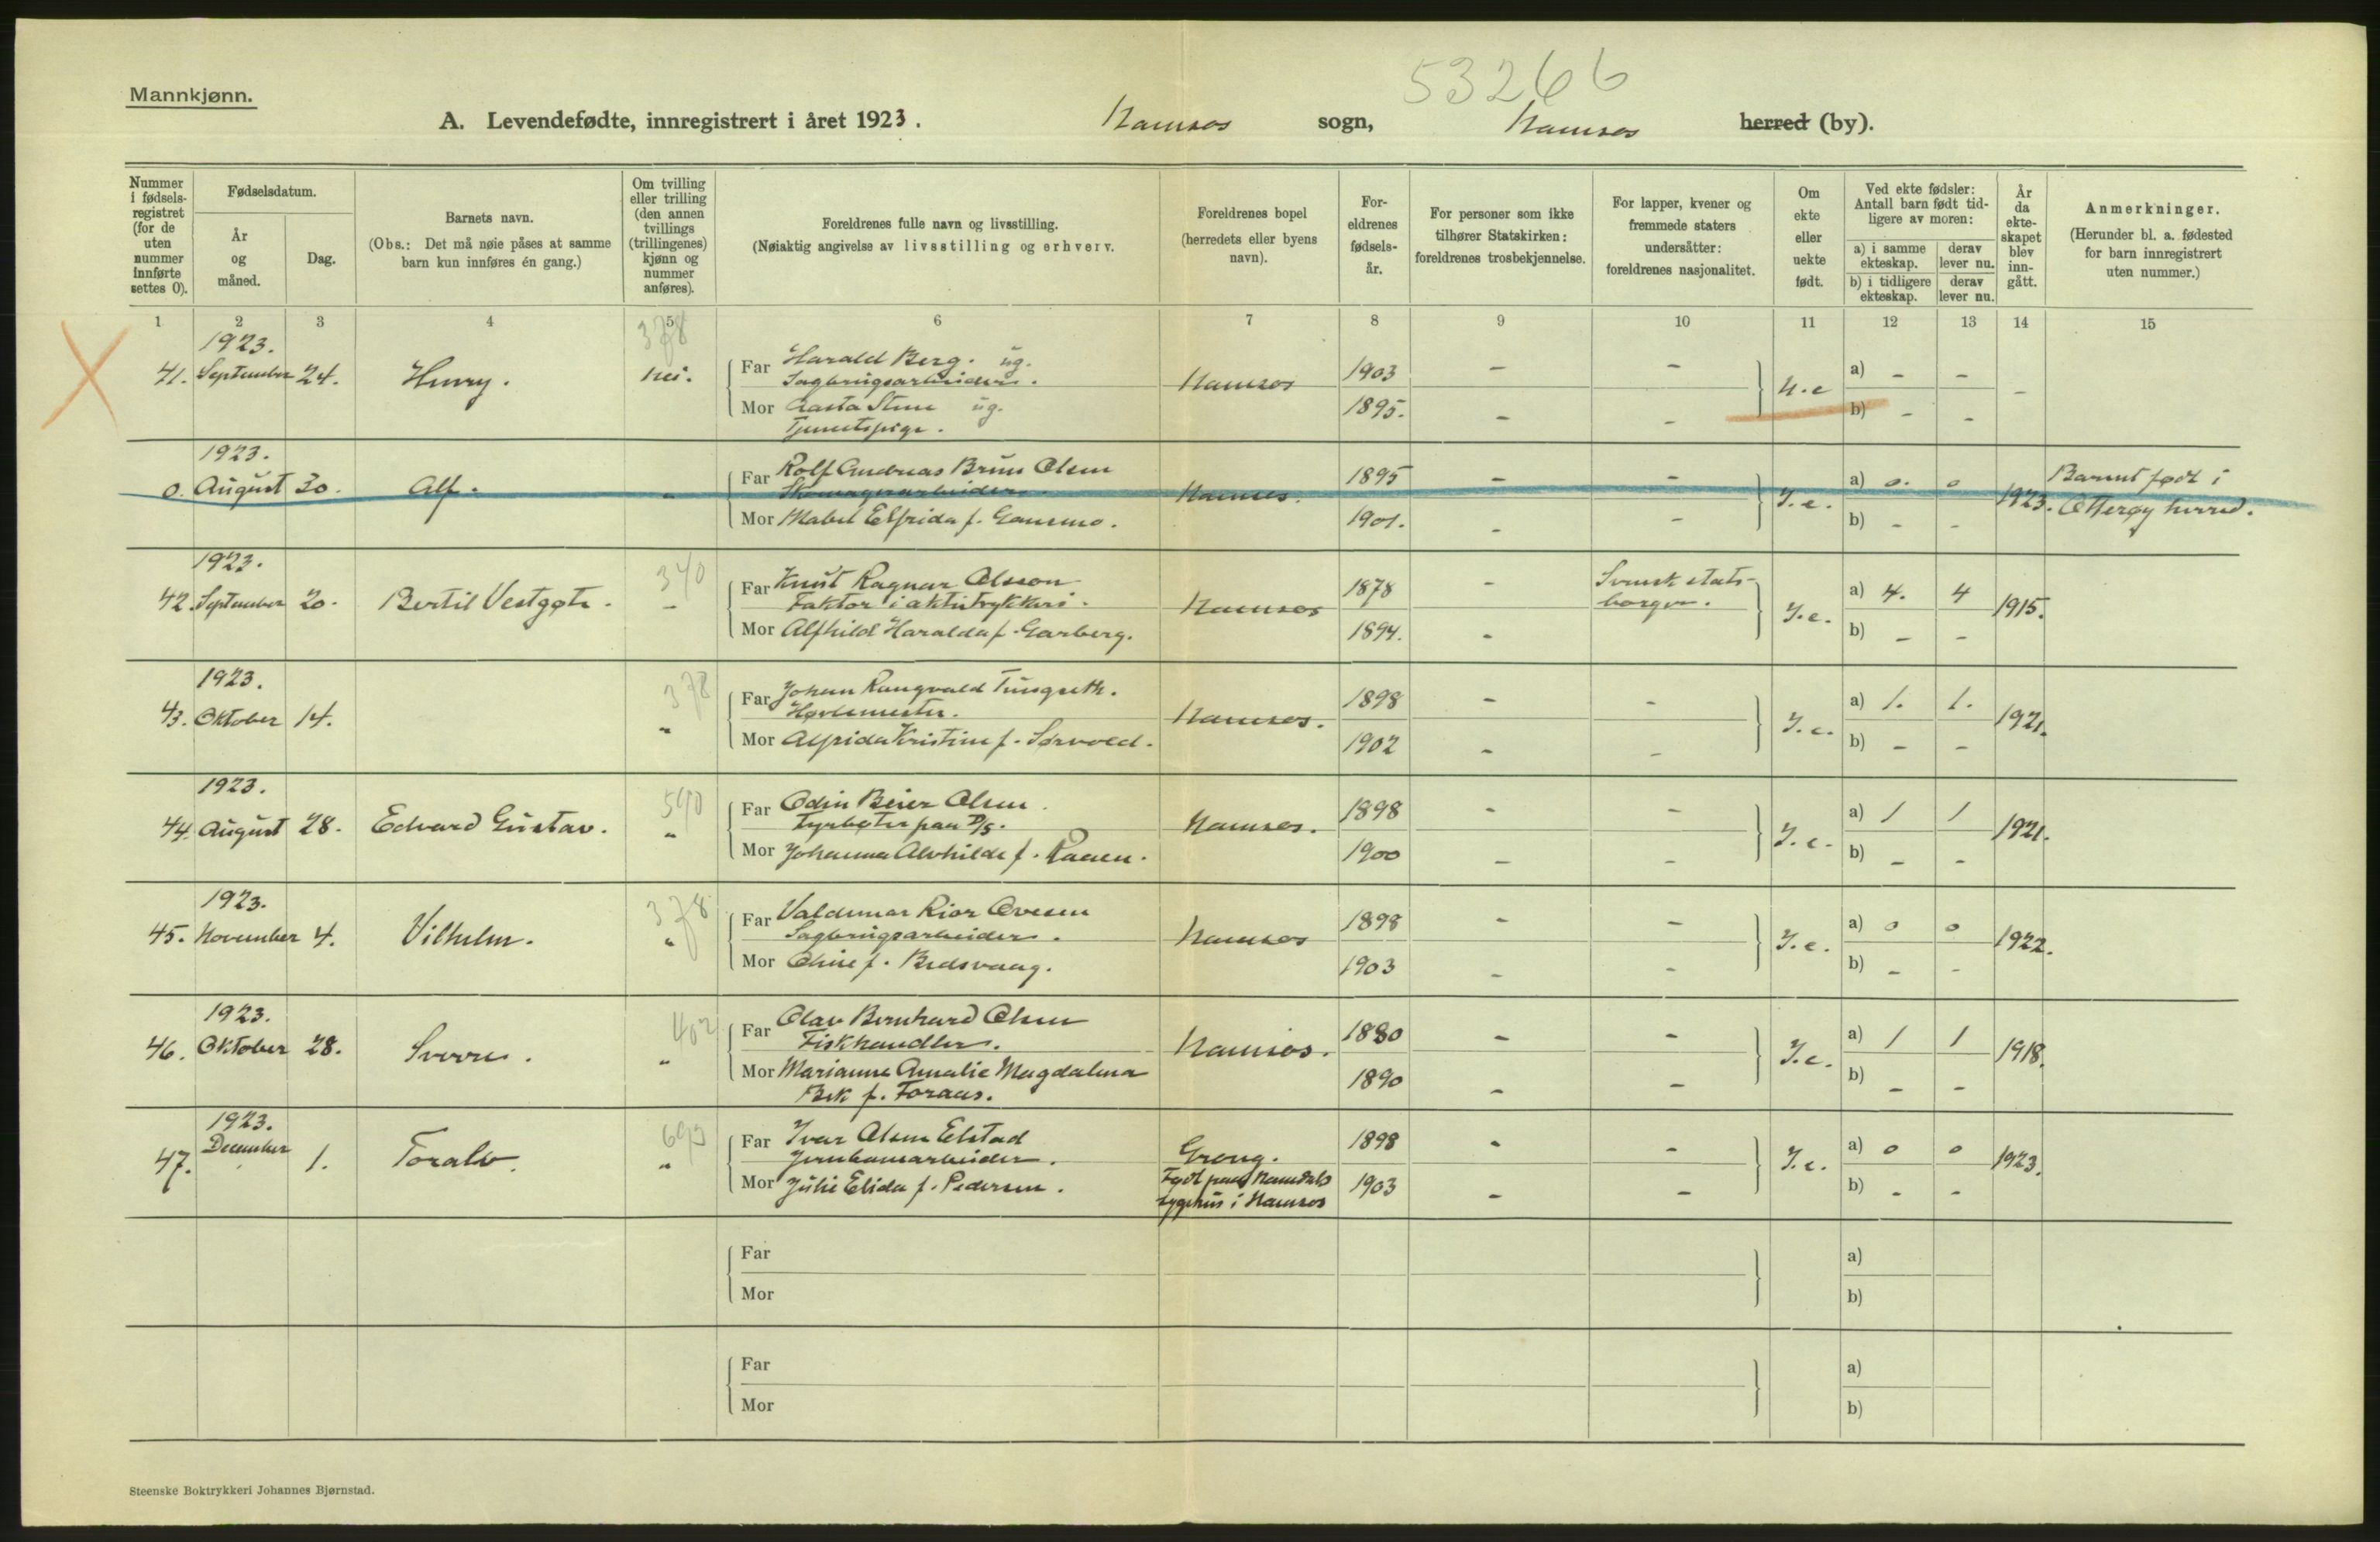 53266
Mannkjønn.
A. Levendefødte, innregistrert i året 1923. Namsos sogn, Namsos herred (by).
Nummer i fødsels-registret (for de uten nummer innførte settes 0).
Fødselsdatum.
År og måned.
Dag.
Barnets navn.
(Obs.: Det må nøie påses at samme barn kun innføres én gang.)
Om tvilling eller trilling (den annen tvillings (trillingenes) kjønn og nummer anføres).
Foreldrenes fulle navn og livsstilling.
(Nøiaktig angivelse av livsstilling og erhverv.
Foreldrenes bopel (herredets eller byens navn).
For-eldrenes fødsels-år.
For personer som ikke tilhører Statskirken: foreldrenes trosbekjennelse.
For lapper, kvener og fremmede staters undersåtter: foreldrenes nasjonalitet.
Om ekte eller uekte født.
Ved ekte fødsler: Antall barn født tid-ligere av moren:
a) i samme ekteskap.
derav lever nu.
b) i tidligere ekteskap.
derav lever nu.
År da ekte-skapet blev inn-gått.
Anmerkninger.
(Herunder bl. a. fødested for barn innregistrert uten nummer.)
1 2 3 4 5 6 7 8 9 10 11 12 13 14 15
1923. 378
41. September 24. Henry. nei. Far Harald Berg. ug. 1903 - -
Sagbrugsarbeider. Namsos U.e a) - - -
Mor Aasta Stene ug. 1895. - - b) - -
Tjenestepige.
1923.
0. August 30. Alf. " Far Rolf Andreas Bruu Olsen 1895 - - a) 0. 0 Barnet født i
Skomagerarbeider. Namsos. I.e. 1923. Otterøy herred.
Mor Mabel Elfrida f. Gansmo. 1901. - - b) - -
1923. 340
42. September 20. Bertil Vestgøte. - Far Knut Ragnar Olsson 1878 - Svensk stats-
Faktor i aktietrykkeri. Namsos borger. I.e. a) 4. 4 1915.
Mor Alfhild Haralda f. Garberg. 1894. - b) - -
1923. 378
43. Oktober 14. " Far Johan Rangvald Tinsgeth. 1898 - - a) 1. 1.
Høvlemester. Namsos. I.e. 1921.
Mor Alfrida Kristine f. Sørvold. 1902 - - b) - -
1923. 590
44. August 28. Edvard Gustav. " Far Odin Beier Olsen 1898 - - a) 1 1
Fyrbøter paa D/S. Namsos. I.e. 1921.
Mor Johanna Alvhilde f. Raaen. 1900 - - b) - -
1923. 378
45. November 4. Vilhelm. " Far Valdemar Rior Ovesen 1898 - - a) 0 0
Sagbrugsarbeider. Namsos I.e. 1922.
Mor Oline f. Bedsvaag. 1903 - - b) - -
1923. 402
46. Oktober 28. Sverre. " Far Olav Bernhard Olsen 1880 - - a) 1 1
Fiskhandler. Namsos. I.e. 1918.
Mor Marianne Amalie Magdalena 1890 - - b) - -
Bek f. Foraas.
1923.
47. December 1. Toralv. " Far Ivar Olsen Elstad 1898 - - a) 0 0
Jernbanearbeider. Grong. I.e. 1923.
Mor Julie Elida f. Pedersen. Født paa Namdals 1903 - - b) - -
sygehus i Namsos
Far a)
Mor b)
Far a)
Mor b)
Steenske Boktrykkeri Johannes Bjørnstad.